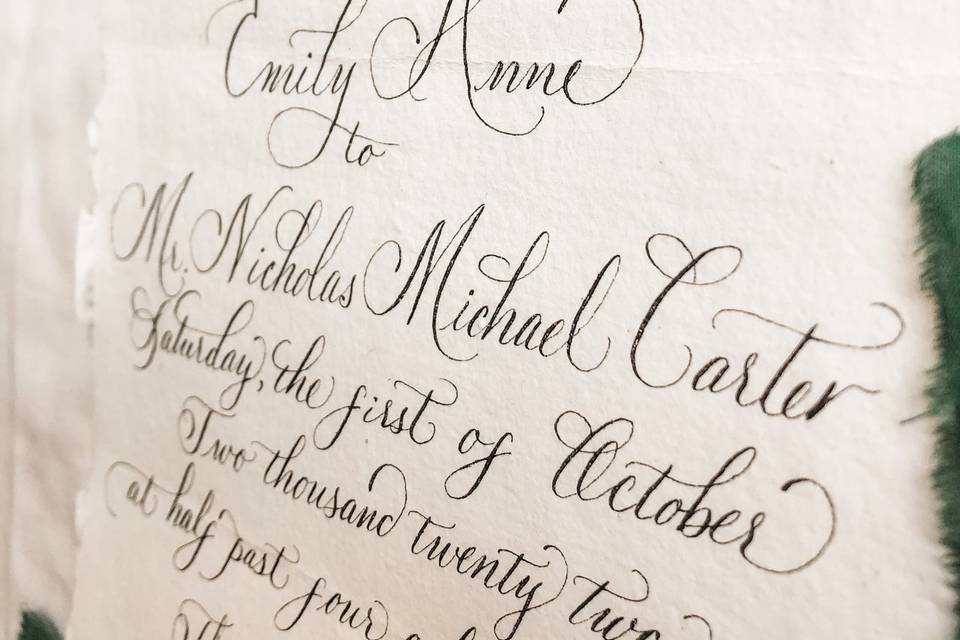 Emily Anne
to
Mr. Nicholas Michael Carter
Saturday, the first of October
Two thousand twenty two
at half past four